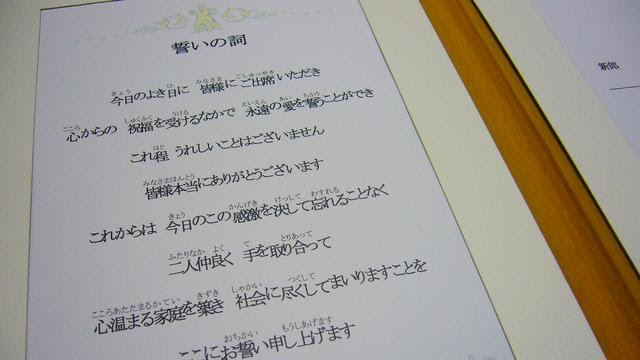 誓いの詞
今日のよき日に 皆様にご出席いただき
心からの 祝福を受けるなかで 永遠の愛を誓うことができ
これ程 うれしいことはございません
皆様本当にありがとうございます
これからは 今日のこの感激を決して忘れることなく
二人仲良く 手を取り合って
心温まる家庭を築き 社会に尽くしてまいりますことを
ここにお誓い申し上げます
新郎